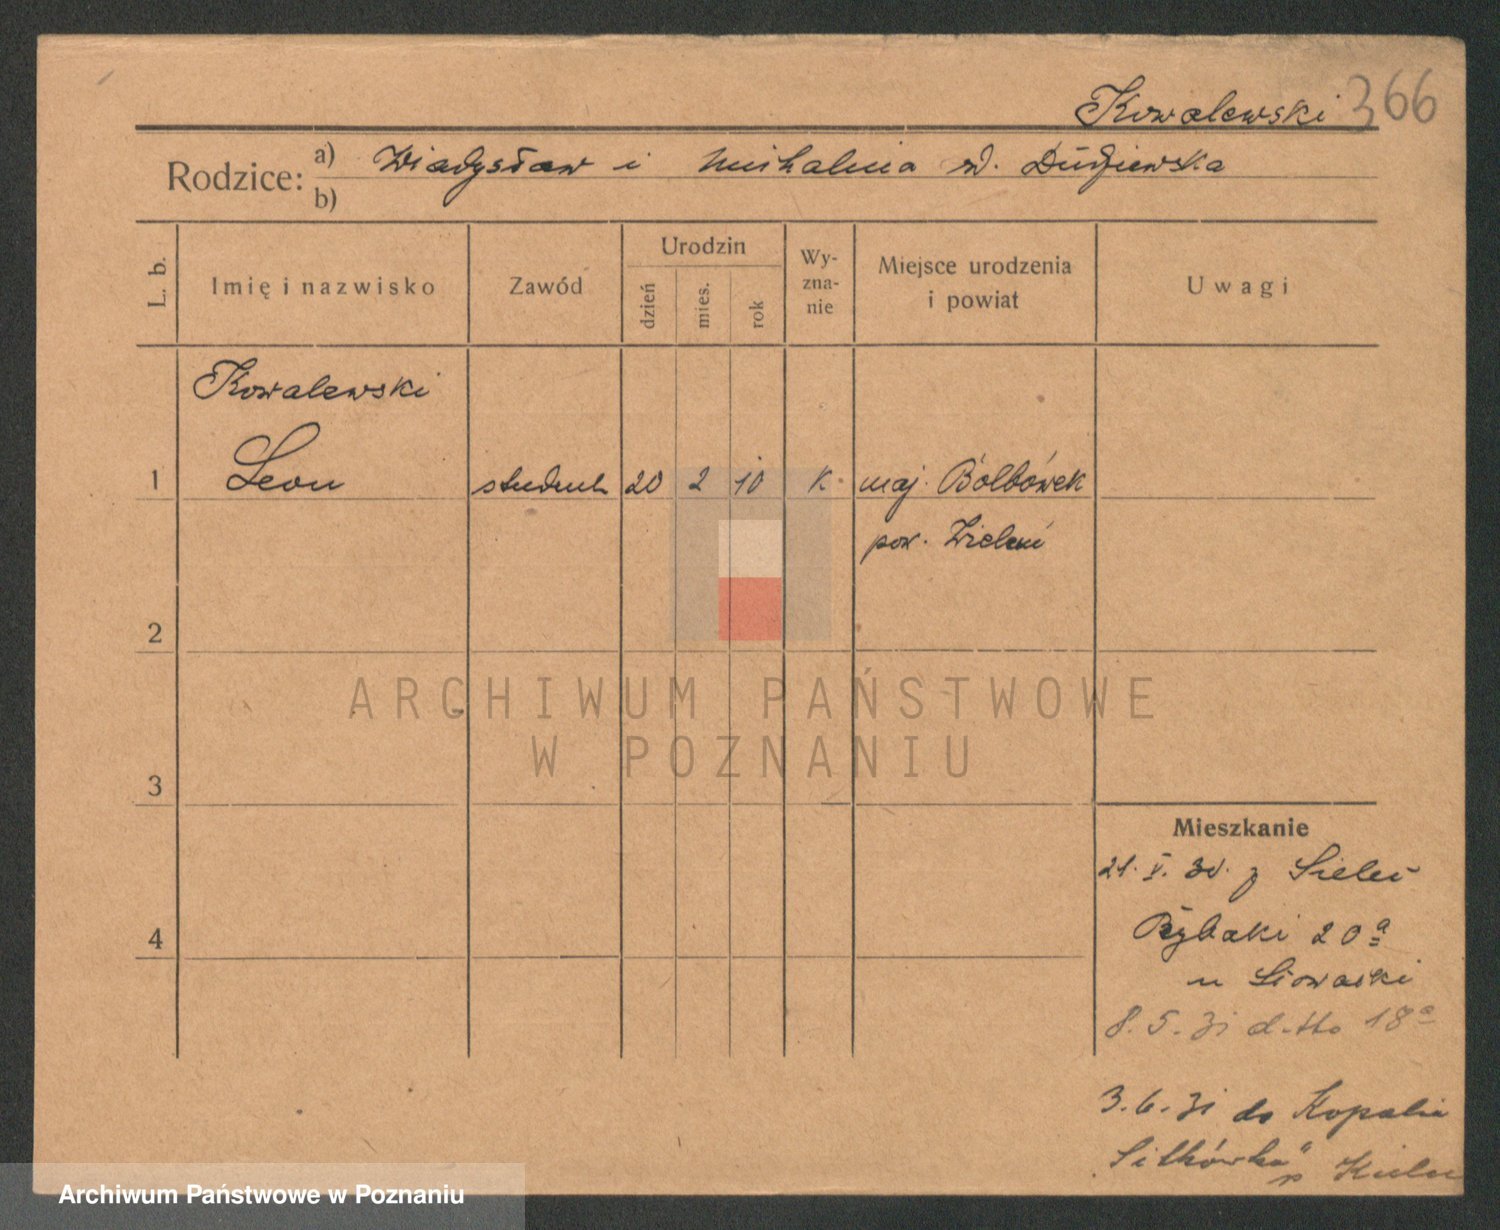 Kowalewski 366
Rodzice: a) Władysław i Mihalina z d.
b)
L. b.
Imię i nazwisko
Zawód
Urodzin
dzień
mies.
rok
Wy-
zna-
nie
Miejsce urodzenia
i powiat
Uwagi
Kowalewski
1 Leon student 20 2 10 K. maj. Bolbówek
pow. Wieluń
2
3
4
Mieszkanie
21. V. 30. z
Rybaki 20a
u
8. 5. 31 d-tto 18a
3. 6. 31 do Kopalni
„Sitkówka" p Kielce
ARCHIWUM PAŃSTWOWE
W POZNANIU
Archiwum Państwowe w Poznaniu